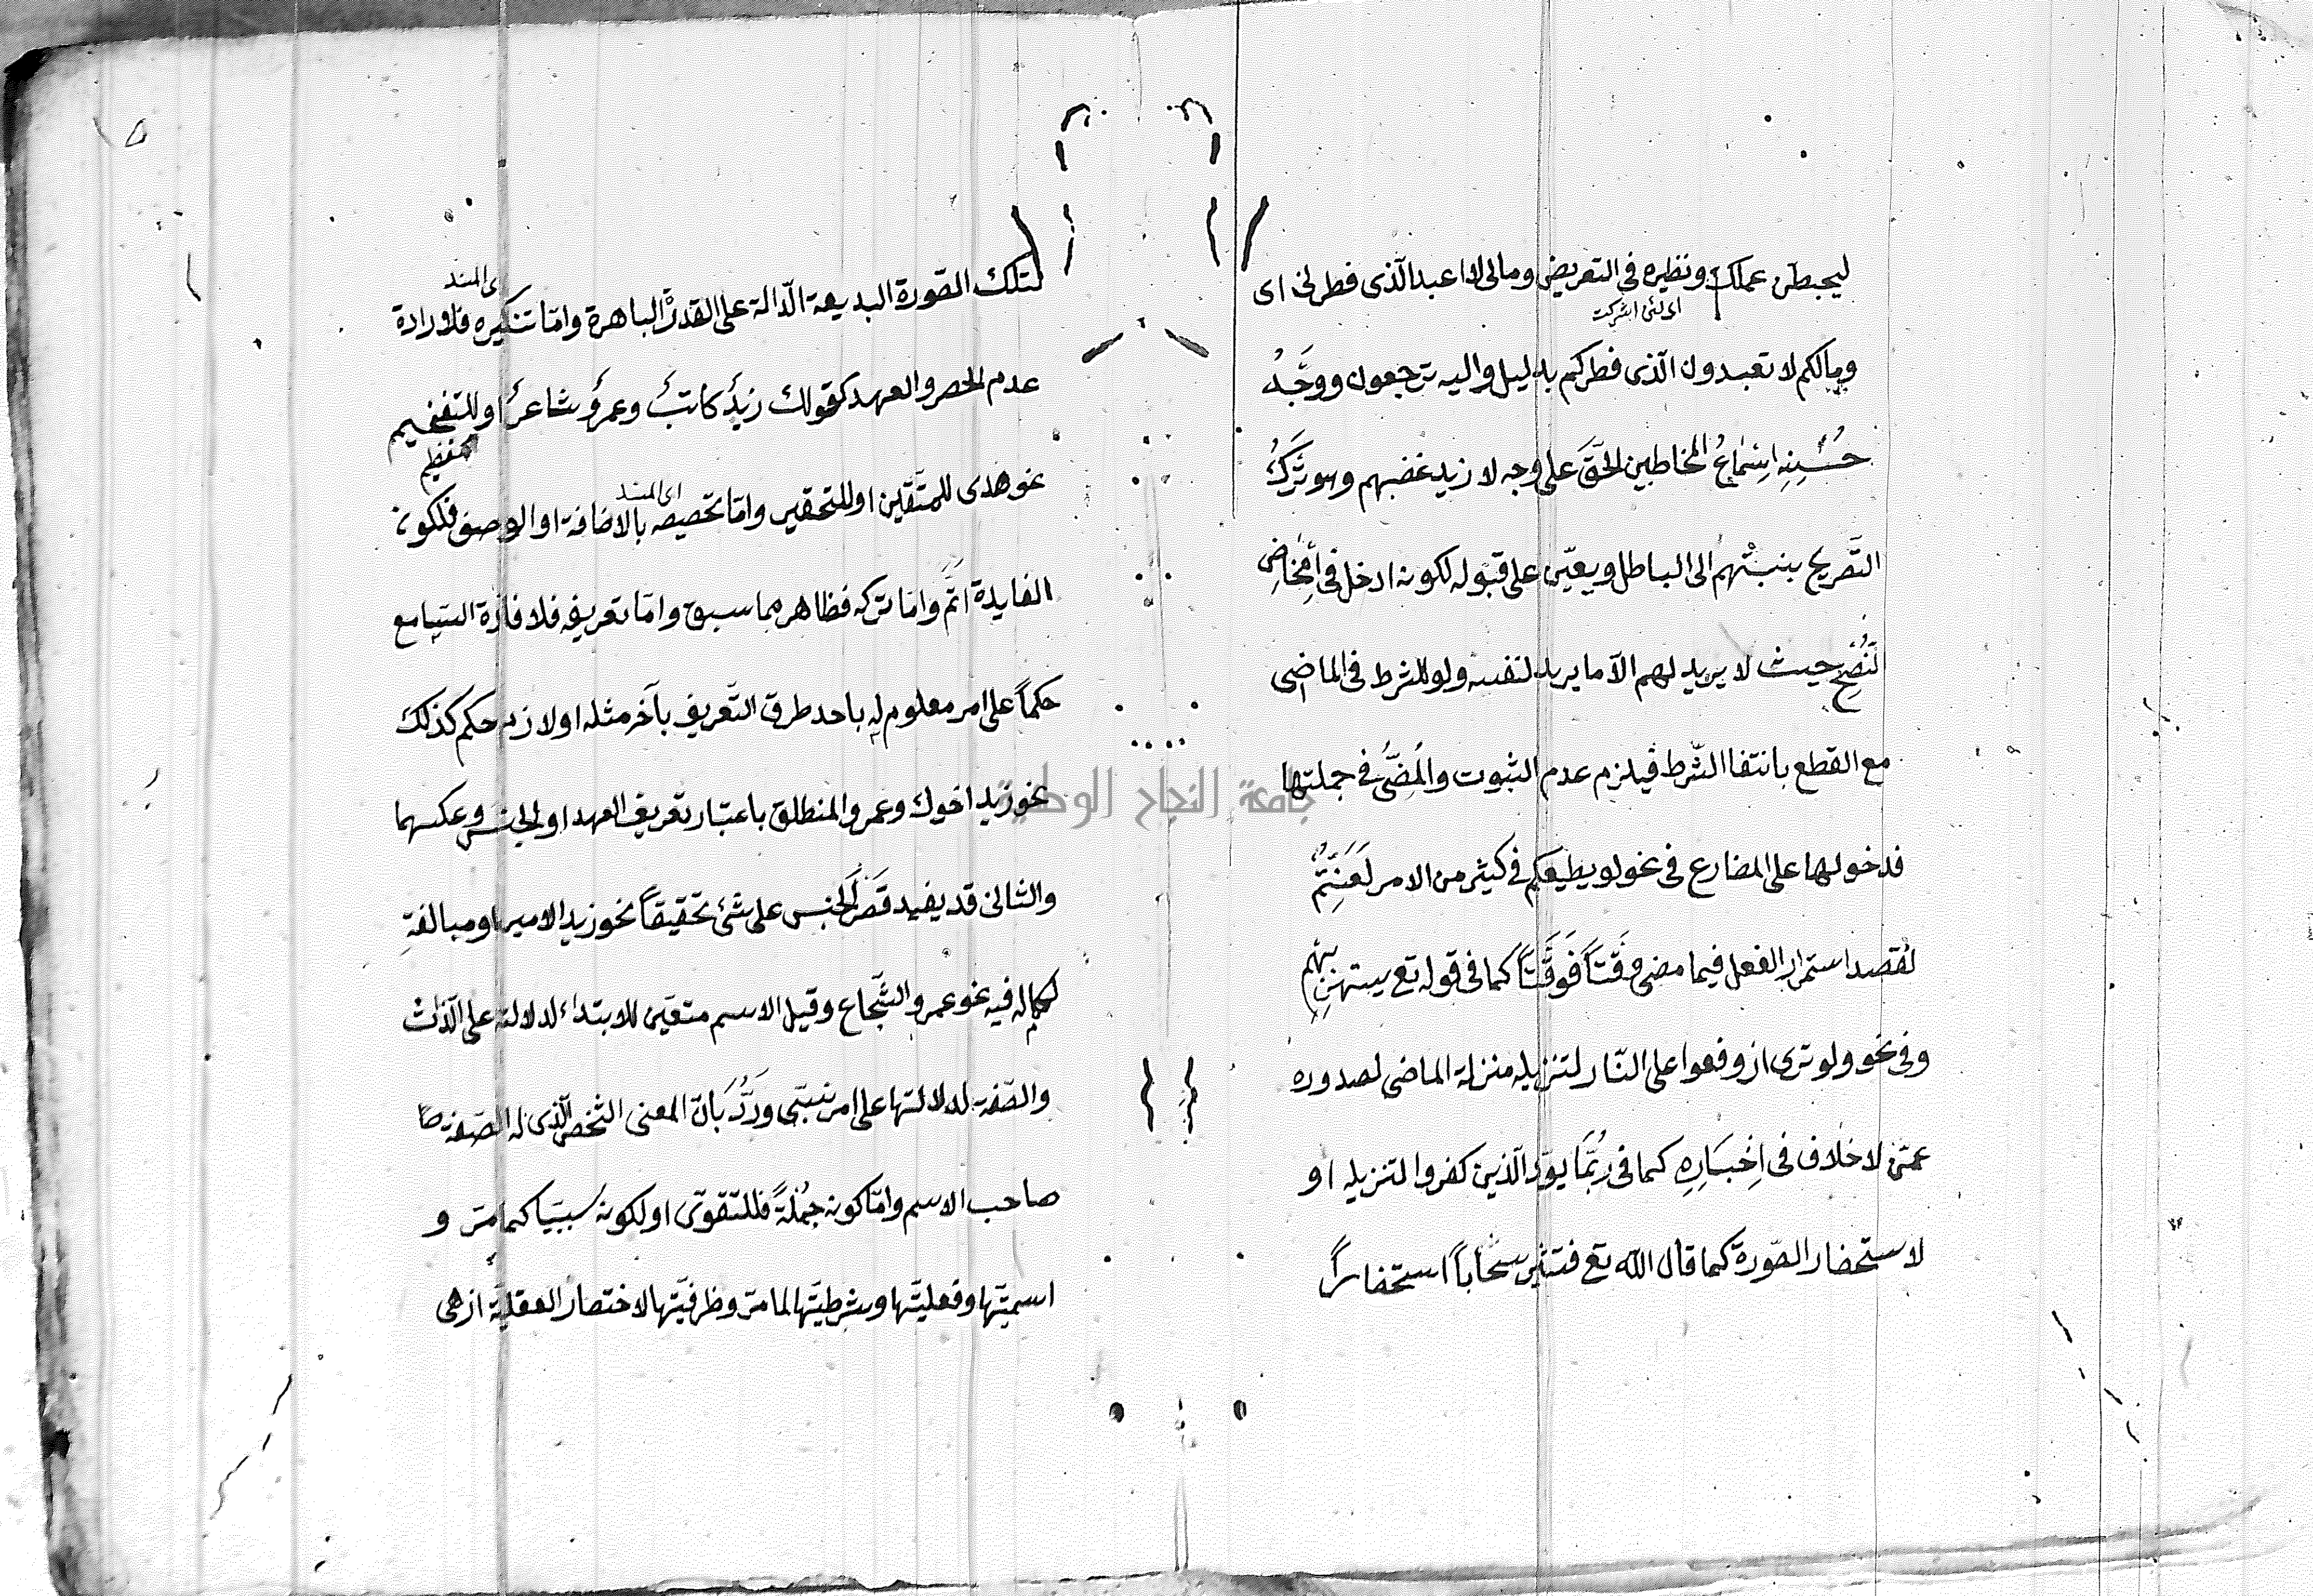 ليحبطن عملك ونظيره في التعريض ومالي لا اعبد الّذى فطرني اى
اى لئن اشركت
ومالكم لا تعبدون الّذى فطركم بدليل واليه ترجعون ووجّهُ
حُسْنِهِ اِسْماعُ المخاطبين الحقَّ على وجه لا زيد غضبهم وهو تَرَكُ
التّصريح بنسبتهم الى الباطل ويعيّن على قبوله لكونه ادخل في أمْخاضِ
لنُّصْحِ حيث لا يريد لهم الّا ما يريد لنفسه ولو للشرط فى الماضى
مع القطع بانتفا الشّرط فيلزم عدم الثبوت والمُضّىُ في جملتها
فدخولها على المضارع فى نحو لو يطيعكم في كثير من الامر لَعَنِتُّمْ
لقصد استمرار الفعل فيما مضى وَقْتاً فَوَقْتاً كما فى قوله تع يستهزئ بهم
وفى نحو ولو ترى از وقعوا على النّار لتنزيله منزلة الماضى لصدوره
عمّن لا خلاف فى اِخبَارِهِ كما فى رُبَّمَا يودّ الّذين كفروا لتنزيله او
لاستحضار الصّورة كما قال الله تع فتثير سحاباً استحضاراً
لتلك الصّورة البديعة الدّالة على القدرة الباهرة وامّا تنكيره فلاورادة
اى المسند
عدم الحصر والعهد كقولك زيدٌ كاتبٌ وعمروٌ شاعرٌ او للتفخيم
نحو هدى للمتّقين او للتحقير وامّا تخصيصه بالاضافة او الوصف فلكون
اى المسند
الفايدة اتمَّ وامّا تركه فظاهر مما سبق وامّا تعريفه فلافازة السّامع
حكماً على امر معلوم له باحد طرق التّعريف بآخر مثله او لازم حكم كذلك
نحو زيد اخوك وعمرو المنطلق باعتبار تعريف العهد او الجنس وعكسهما
والثانى قد يفيد قَصْرَ الجنس على شئ تحقيقاً نحو زيد الامير او مبالغةِ
لكماله فيه نحو عمرو الشّجاع وقيل الاسم متعيّن للابتداء لدلالته على الذّات
والصّفة لدلالتها على امر نسبّى ورَدُّ بَانّ المعنى الشّخص الّذى له الصّفة
صاحب الاسم وامّا كونه جُمْلَةً فللتقوّى او لكونه سببيّا كما مرّ و
اسميّتها وفعليّتها وشرطيّتها لما مرّ وظرفيّتها لاختصار الفعليّة از هى
جامعة النجاح الوطنية